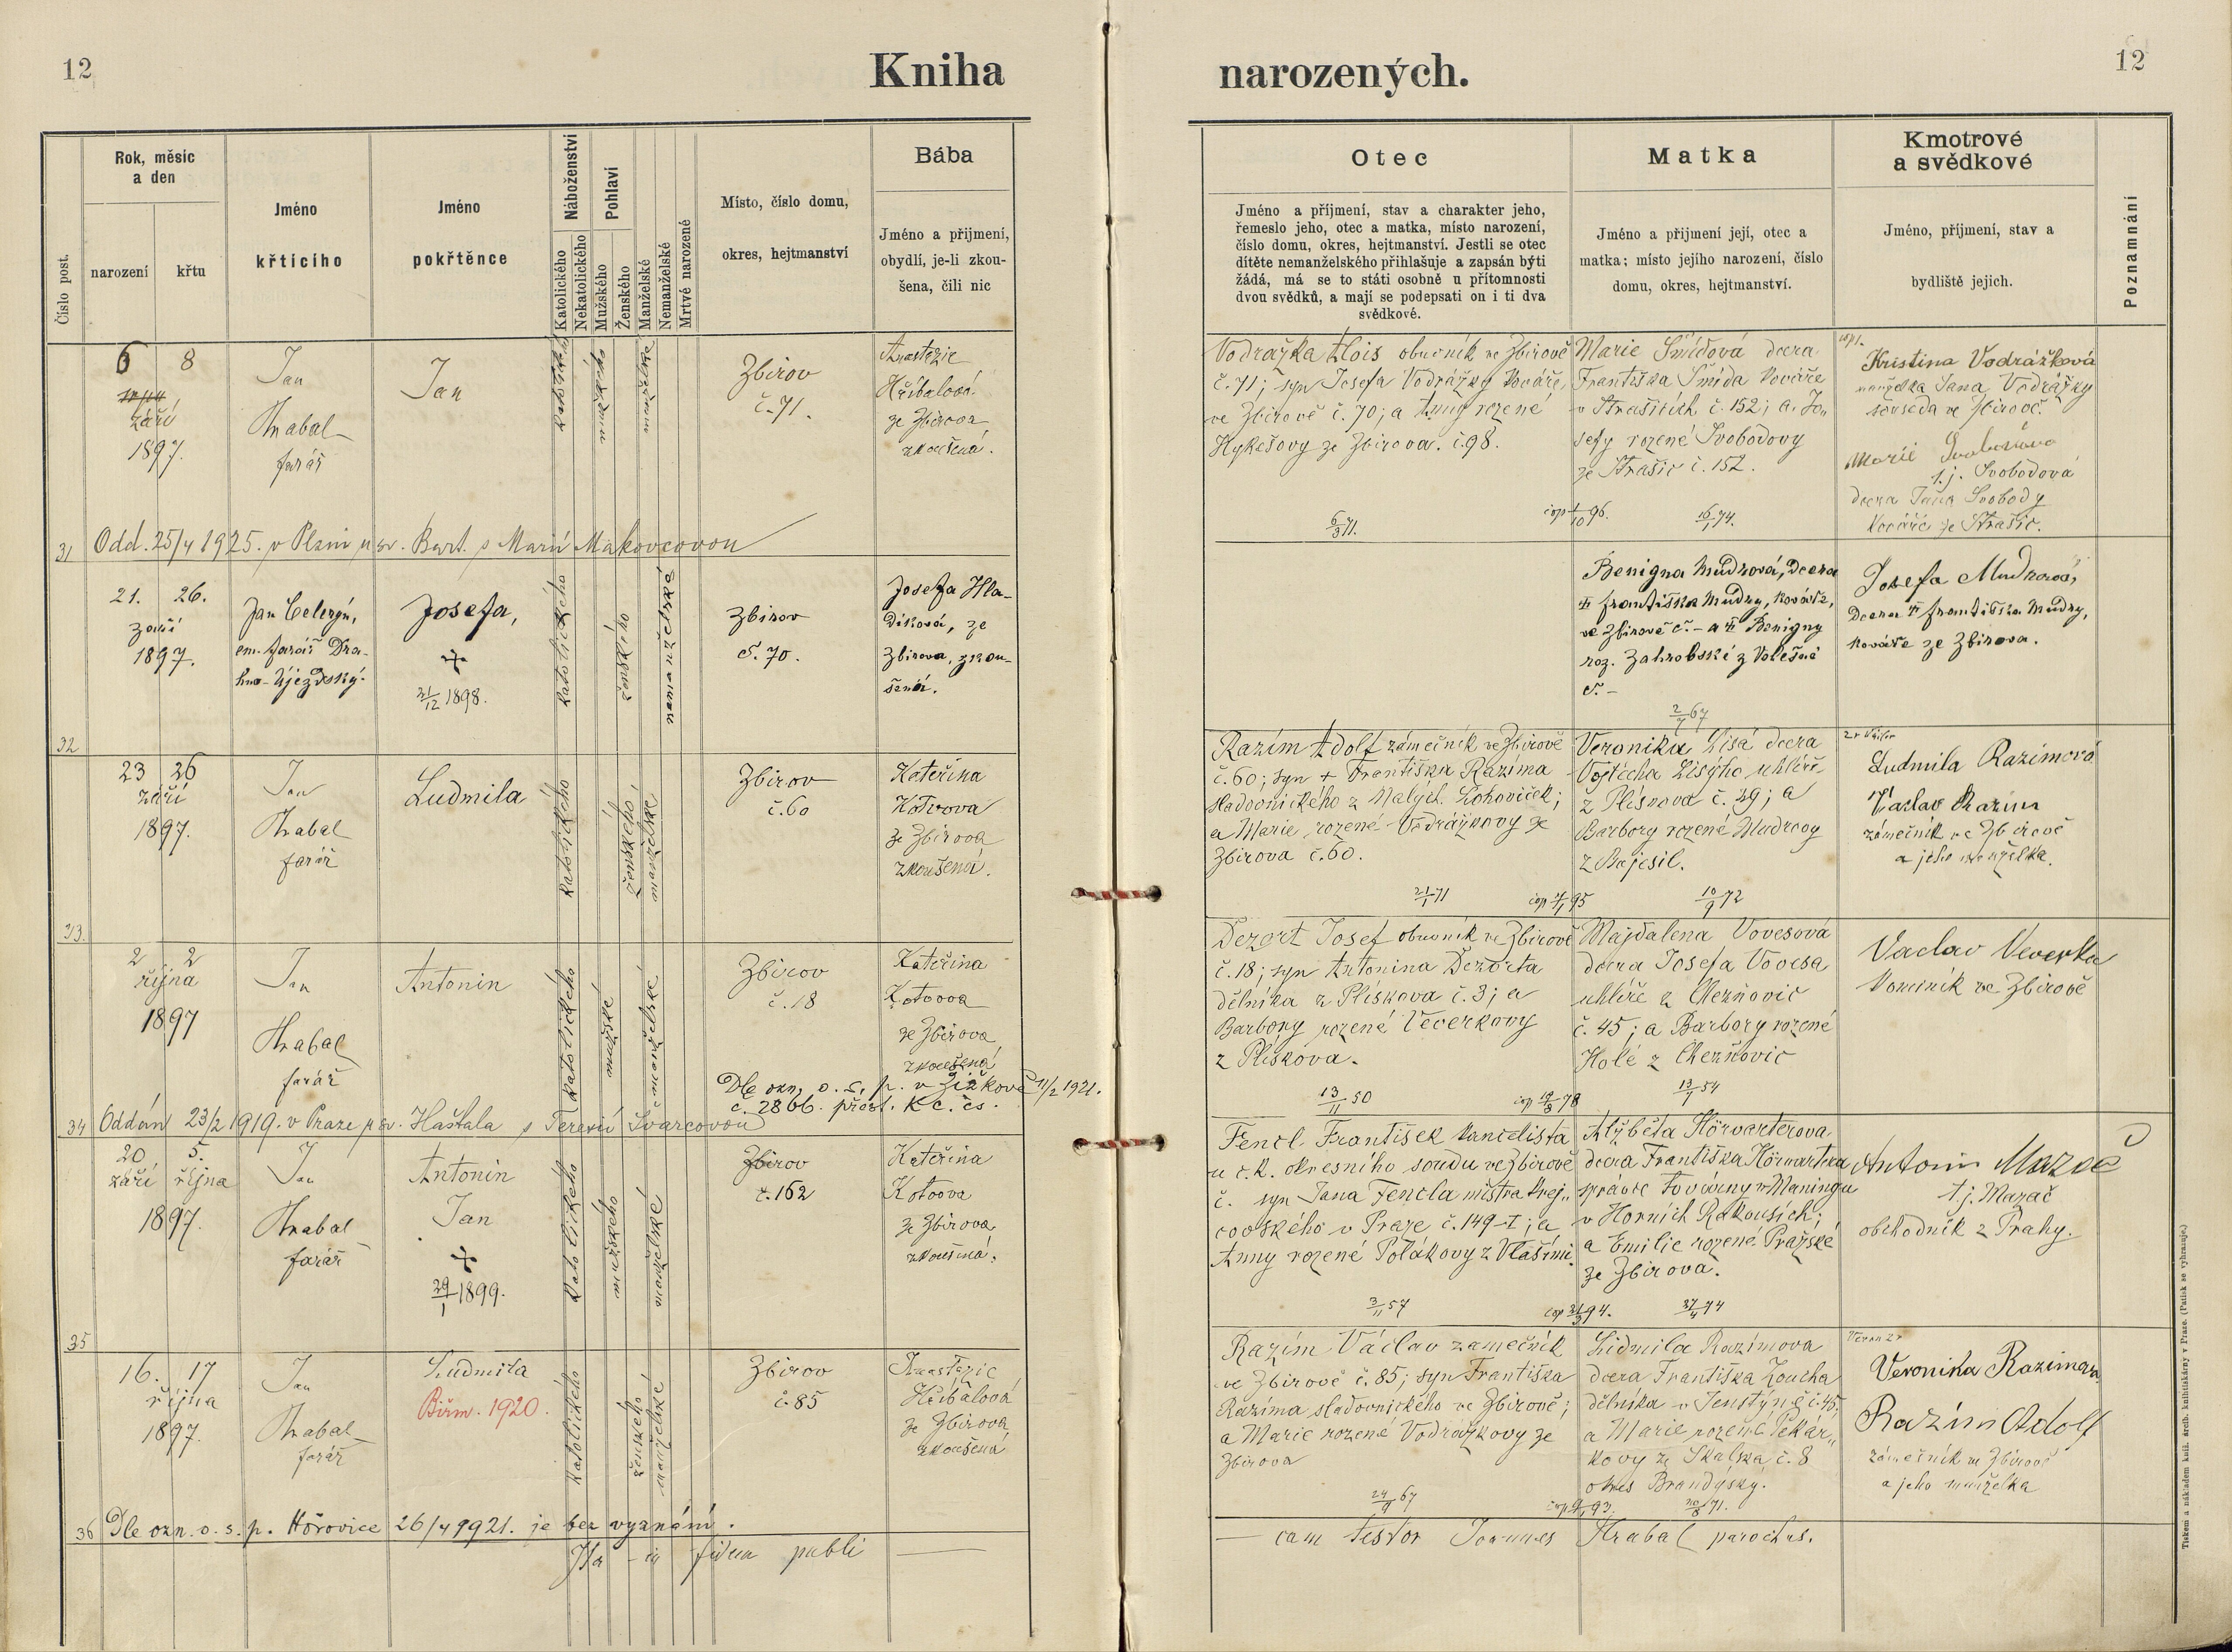 12
Kniha
narozených.
12
Číslo post.
Rok, měsíc
a den
narození
křtu
Jméno
křtícího
Jméno
pokřtěnce
Náboženství
Katolického
Nekatolického
Pohlaví
Mužského
Ženského
Manželské
Nemanželské
Mrtvé narozené
Místo, číslo domu,
okres, hejtmanství
Bába
Jméno a přijmení,
obydlí, je-li zkou-
šena, čili nic
Otec
Jméno a příjmení, stav a charakter jeho,
řemeslo jeho, otec a matka, místo narození,
číslo domu, okres, hejtmanství. Jestli se otec
dítěte nemanželského přihlašuje a zapsán býti
žádá, má se to státi osobně u přítomnosti
dvou svědků, a mají se podepsati on i ti dva
svědkové.
Matka
Jméno a přijmení její, otec a
matka; místo jejího narození, číslo
domu, okres, hejtmanství.
Kmotrové
a svědkové
Jméno, příjmení, stav a
bydliště jejich.
Poznamnání
6 8
září
1897.
Jan
Hrabal
farář
Jan
katolického
mužského
manželské
Zbirov
č. 71.
Anastazie
Hříbalová
ze Zbirova
zkoušená.
Vodražka Alois obuvník ve Zbirově
č. 71; syn Josefa Vodrážky kováře
ve Zbirově č. 70; a Anny rozené
Hykešovy ze Zbirova. č. 98.
6/3 71.
cop 1/10 96.
Marie Šmídová dcera
Františka Šmída kováře
v Strašicích č. 152; a Jo„
sefy rozené Svobodovy
ze Strašic č. 152.
16/1 74.
Kristina Vodrážková
manželka Jana Vodrážky
souseda ve Zbirově.
Marie Svobodova
t. j. Svobodová
dcera Jana Svobody
kováře ze Strašic.
31 Odd. 25/4 1925. v Plzni u sv. Bart. s Marií Makovcovou
21. 26.
září
1897.
Jan Celerýn,
em. farář Dra-
hno-Újezdský.
Josefa,
+
21/12 1898.
katolického
ženského
nemanželské
Zbirov
č. 70.
Josefa Hla-
díková, ze
Zbirova, zkou-
šená.
Benigna Mudrová, dcera
† Františka Mudry, kováře,
ve Zbirově č. - a † Benigny
roz. Zahrobské z Volešné
č. -
2/7 67
Josefa Mudrová,
dcera † Františka Mudry,
kováře ze Zbirova.
32
23 26
září
1897.
Jan
Hrabal
farář
Ludmila
katolického
ženského
manželské
Zbirov
č. 60
Kateřina
Kotvova
ze Zbirova
zkoušená.
Razím Adolf zámečník ve Zbirově
č. 60; syn + Františka Razíma
sladovnického z Malých Lohoviček;
a Marie rozené Vodrážkovy ze
Zbirova č. 60.
21/1 71
Veronika Lisá dcera
Vojtěcha Lisýho uhlíře
z Plískova č. 49; a
Barbory rozené Mudrovy
z Bajesil.
10/9 72
Ludmila Razímová
Václav Razím
zámečník ve Zbirově
a jeho manželka.
33.
2 2
října
1897
Jan
Hrabal
farář
Antonin
katolického
mužské
manželské
Zbirov
č. 18
Kateřina
Kotvova
ze Zbirova
zkoušená
Dle ozn. o. s. p. v Žižkově 11/2 1921.
č. 2866. přest. k c. čs.
Dezort Josef obuvník ve Zbirově
č. 18; syn Antonina Dezorta
dělníka z Plískova č. 3; a
Barbory rozené Veverkovy
z Plískova.
13/11 50
Majdalena Vovesová
dcera Josefa Vovesa
uhlíře z Cheznovic
č. 45; a Barbory rozené
Holé z Cheznovic
13/7 54
Vaclav Veverka
kominík ve Zbirově
34 Oddán 23/2 1919. v Praze u sv. Haštala s Terezií Švarcovou
20 5.
září října
1897.
Jan
Hrabal
farář
Antonin
Jan
+
29/1 1899.
katolického
mužského
manželské
Zbirov
č. 162
Kateřina
Kotvova
ze Zbirova
zkoušená.
Fencl František kancelista
u c. k. okresního soudu ve Zbirově
č. syn Jana Fencla mistra krej„
covského v Praze č. 149-I; a
Anny rozené Polákovy z Vlašimi.
3/11 57
Alžběta Hörvarterova
dcera Františka Hörvartera
správce továrny v Maningu
v Horních Rakousích;
a Emilie rozené Pražské
ze Zbirova.
Antonín Mazač
t. j. Mazač
obchodník z Prahy.
35
16. 17
října
1897.
Jan
Hrabal
farář
Ludmila
Biřm. 1920.
katolického
ženského
manželské
Zbirov
č. 85
Anastazie
Hříbalová
ze Zbirova
zkoušená
Razím Václav zámečník
ve Zbirově č. 85; syn Františka
Razíma sladovnického ve Zbirově;
a Marie rozené Vodrážkovy ze
Zbirova
24/9 67
Lidmila Razímova
dcera Františka Zoucha
dělníka v Jenštýně č. 45,
a Marie rozené Pekár„
kovy ze Skalska č. 8
okres Brandýský.
Veronika Razimova
Razím Adolf
zámečník ve Zbirově
a jeho manželka
36 Dle ozn. o. s. p. Hořovice 26/4 1921. je bez vyznání.
Ita in fidem publi
cam testor Joannes Hrabal parochus.
Tiskem a nákladem kníž. arcib. knihtiskárny v Praze. (Patisk se vyhrazuje.)